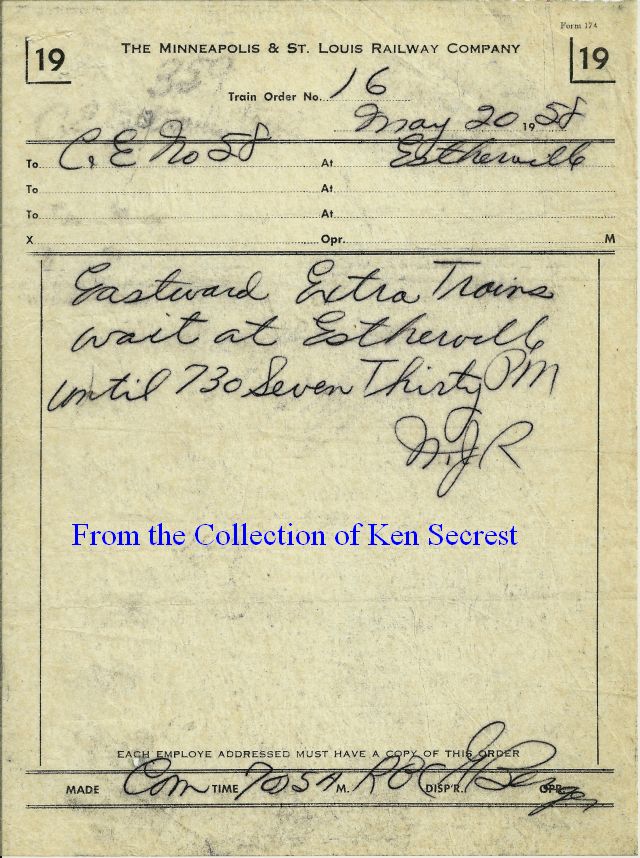 Form 174
19 THE MINNEAPOLIS & ST. LOUIS RAILWAY COMPANY 19
Train Order No. 16
May 20 1958
To C. E. No 58 At Estherville
To At
To At
X Opr. M
Eastward Extra Trains
wait at Estherville
until 730 Seven Thirty PM
From the Collection of Ken Secrest
EACH EMPLOYE ADDRESSED MUST HAVE A COPY OF THIS ORDER
MADE Com TIME 705A M. DISP'R. OPR.